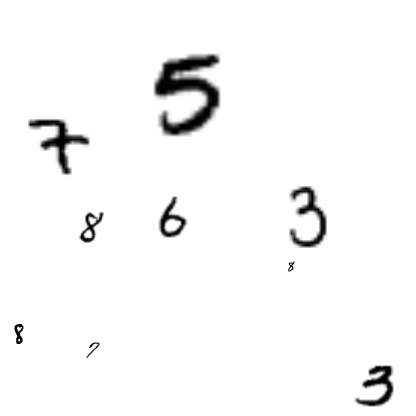 5
7
8 6 3
8
8 7
3